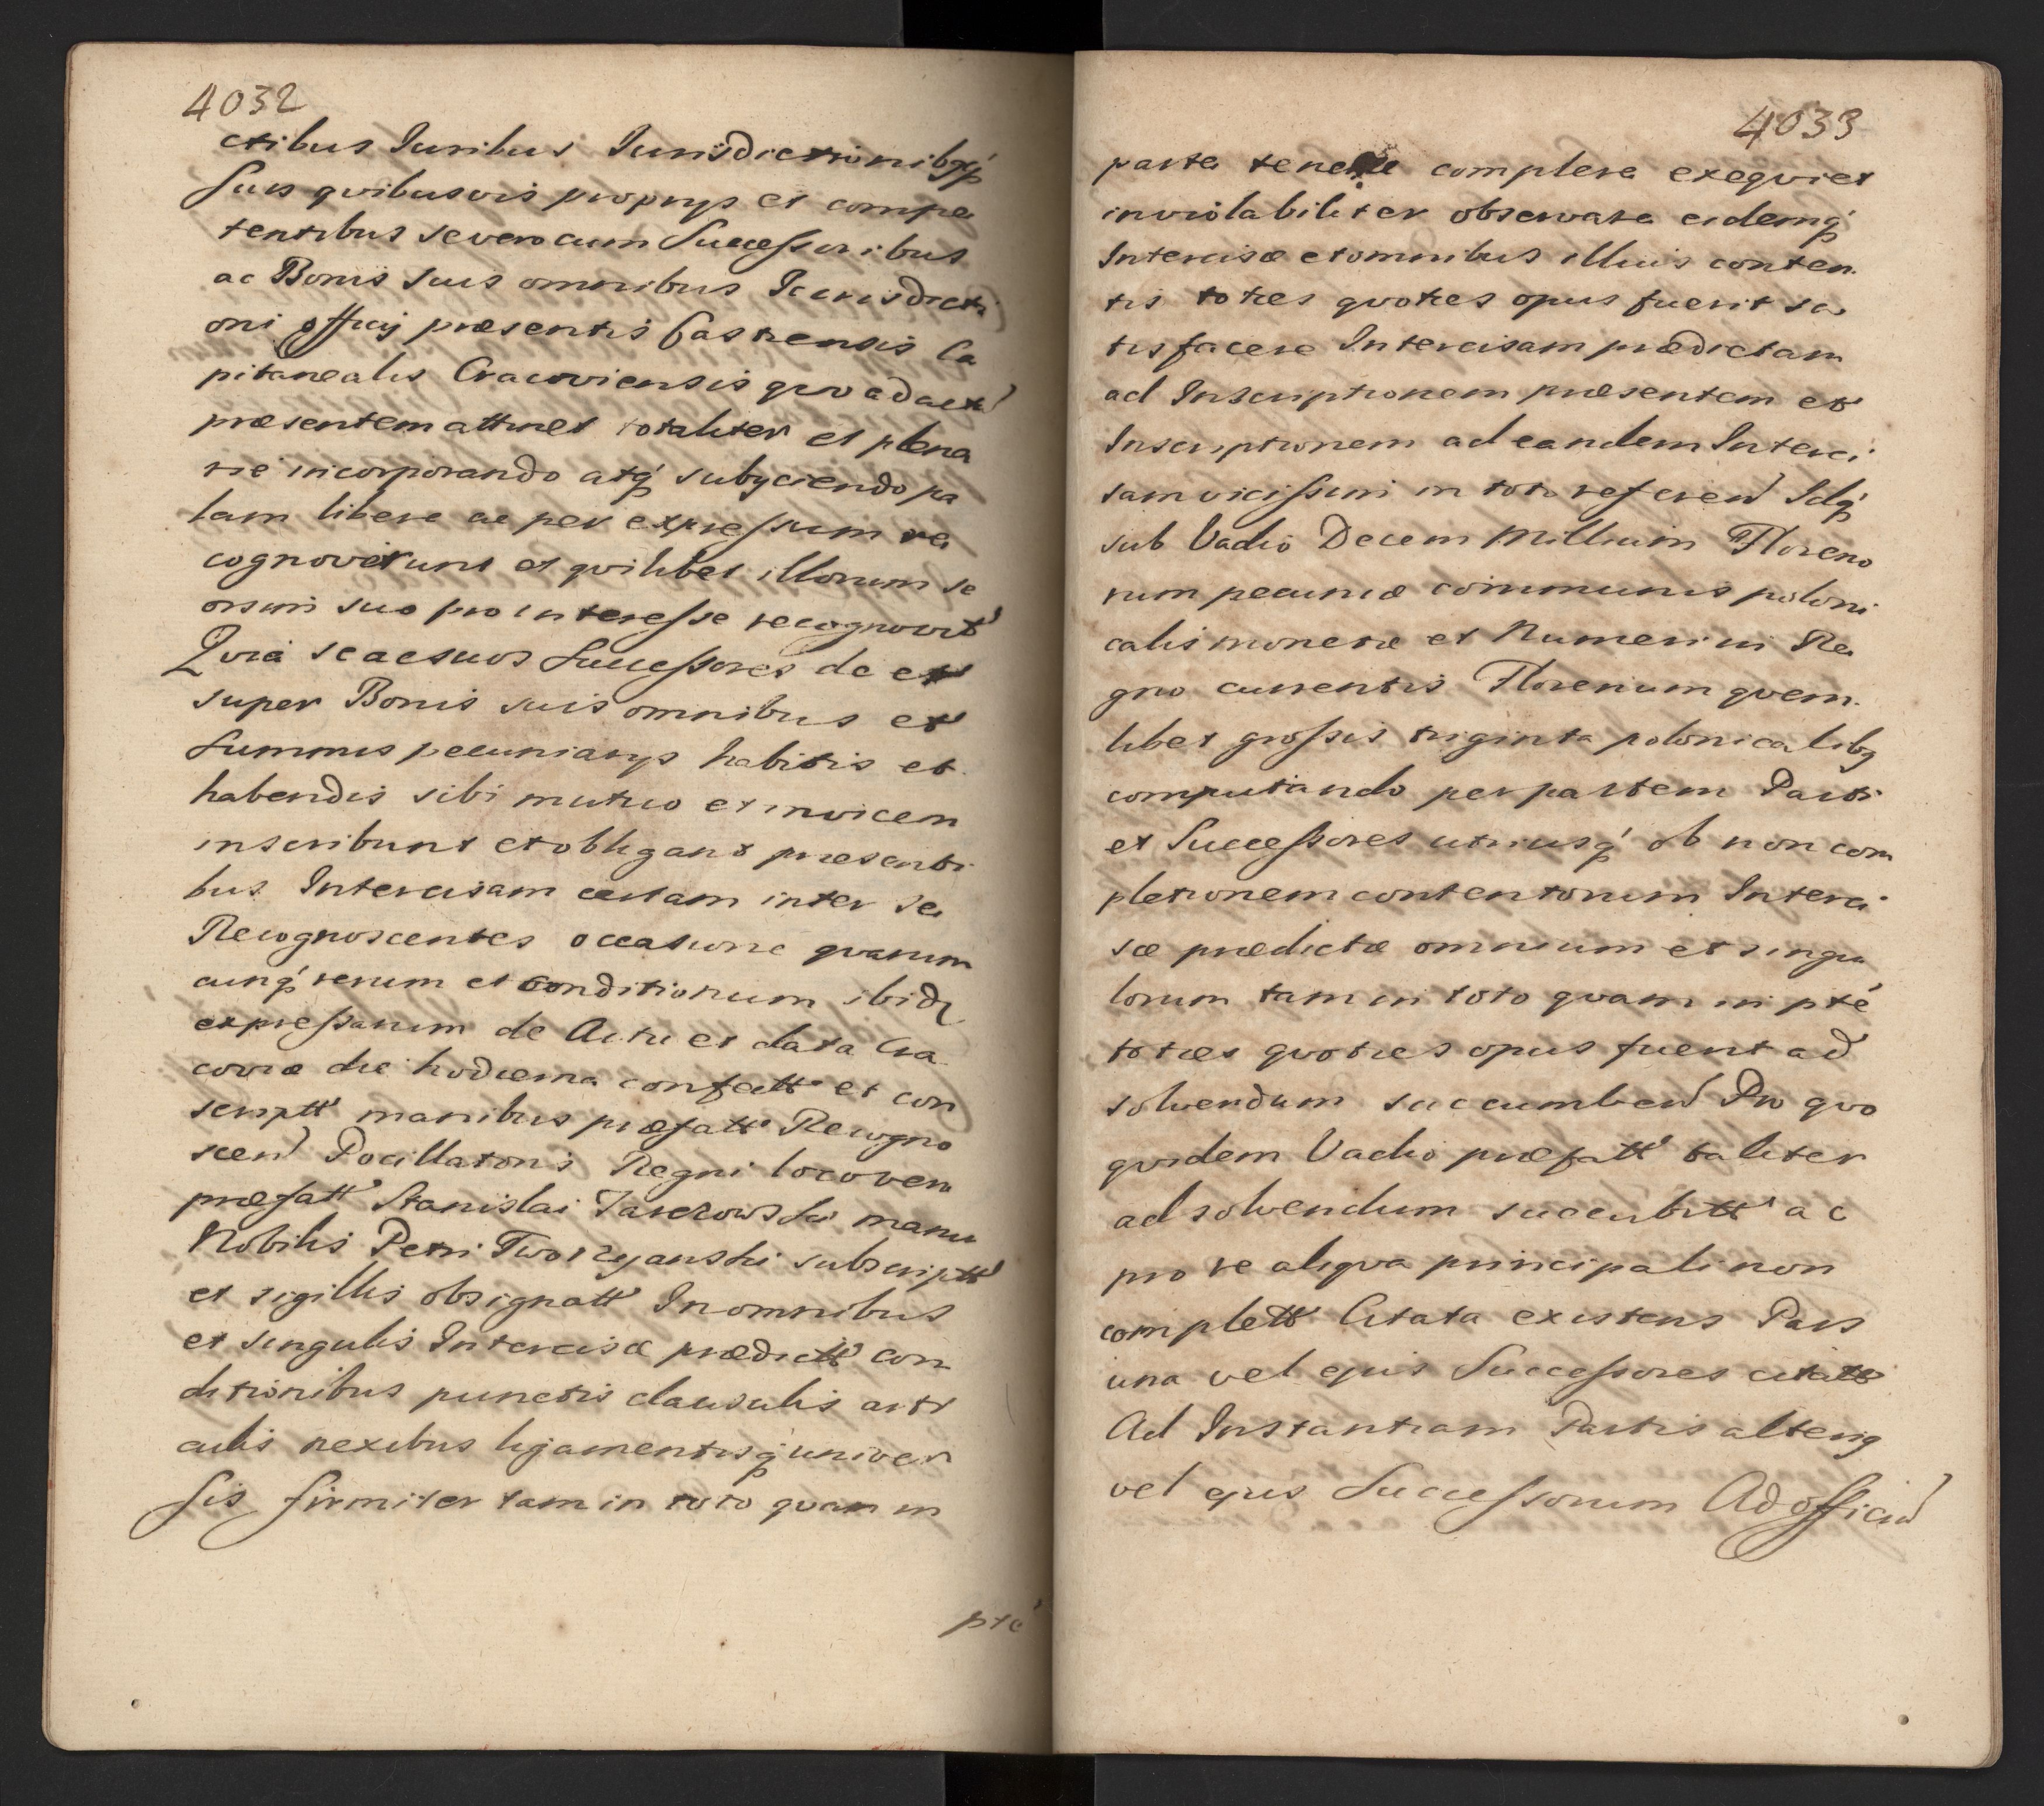 4032
ctibus Juribus Jurisdictionibq́
Suis qvibusvis proprys et compe
tentibus se vero cum Successoribus
ac Bonis suis omnibus Jurisdicti
oni officij præsentis Castrensis Ca
pitanealis Cracoviensis qvo ad actu
præsentem attinet totaliter et plena
rie incorporando atq́ subyciendo pa
lam libere ac per expressum re
cognoverunt et qvilibet illorum se
orsim suo pro interesse recognovit
Qvia se ac suos Successores de et
super Bonis suis omnibus et
Summis pecuniarys habitis et
habendis sibi mutuo et invicem
inscribunt et obligant præsenti
bus Intercisam certam inter se
Recognoscentes occasione qvarum
cunq́ rerum et conditionum ibid
expressarum de Actu et data Cra
coviæ die hodierna confectt et con
scriptt manibus præfatt Recogno
scen Pocillatoris Regni loco vero
præfatt Stanislai Jaxtowski manu
Nobilis Petri Tworzyanski subscriptt
et sigillis obsignatt In omnibus
et singulis Intercisæ prædictt con
ditionibus punctis clausulis arti
culis nexibus ligamentisq́ univer
sis firmiter tam in toto qvam in
pte
4033
parte tenere complere exeqvi et
inviolabiliter observare eidemq́
Intercisæ et omnibus illius conten
tis toties qvoties opus fuerit sa
tisfacere Intercisam prædictam
ad Inscriptionem præsentem et
Inscriptionem ad eandem Interci
sam vicissim in toto referen Idq́
sub Vadio Decem Millium Floreno
rum pecuniæ communis poloni
calis monetæ et Numeri in Re
gno currentis Florenum qvem
libet grossis triginta polonicalibq
computando per partem Parti
et Successores utriusq́ ob non com
pletionem contentorum Interci
sæ prædictæ omnium et singu
lorum tam in toto qvam in pte
toties qvoties opus fuerit ad
solvendum succumben Pro qvo
qvidem Vadio præfatt taliter
ad solvendum succubitt ac
pro re aliqva principali non
complett Citata existens Pars
una vel ejus Successores citatt
Ad Instantiam Partis alterig
vel ejus Successorum Ad officiu